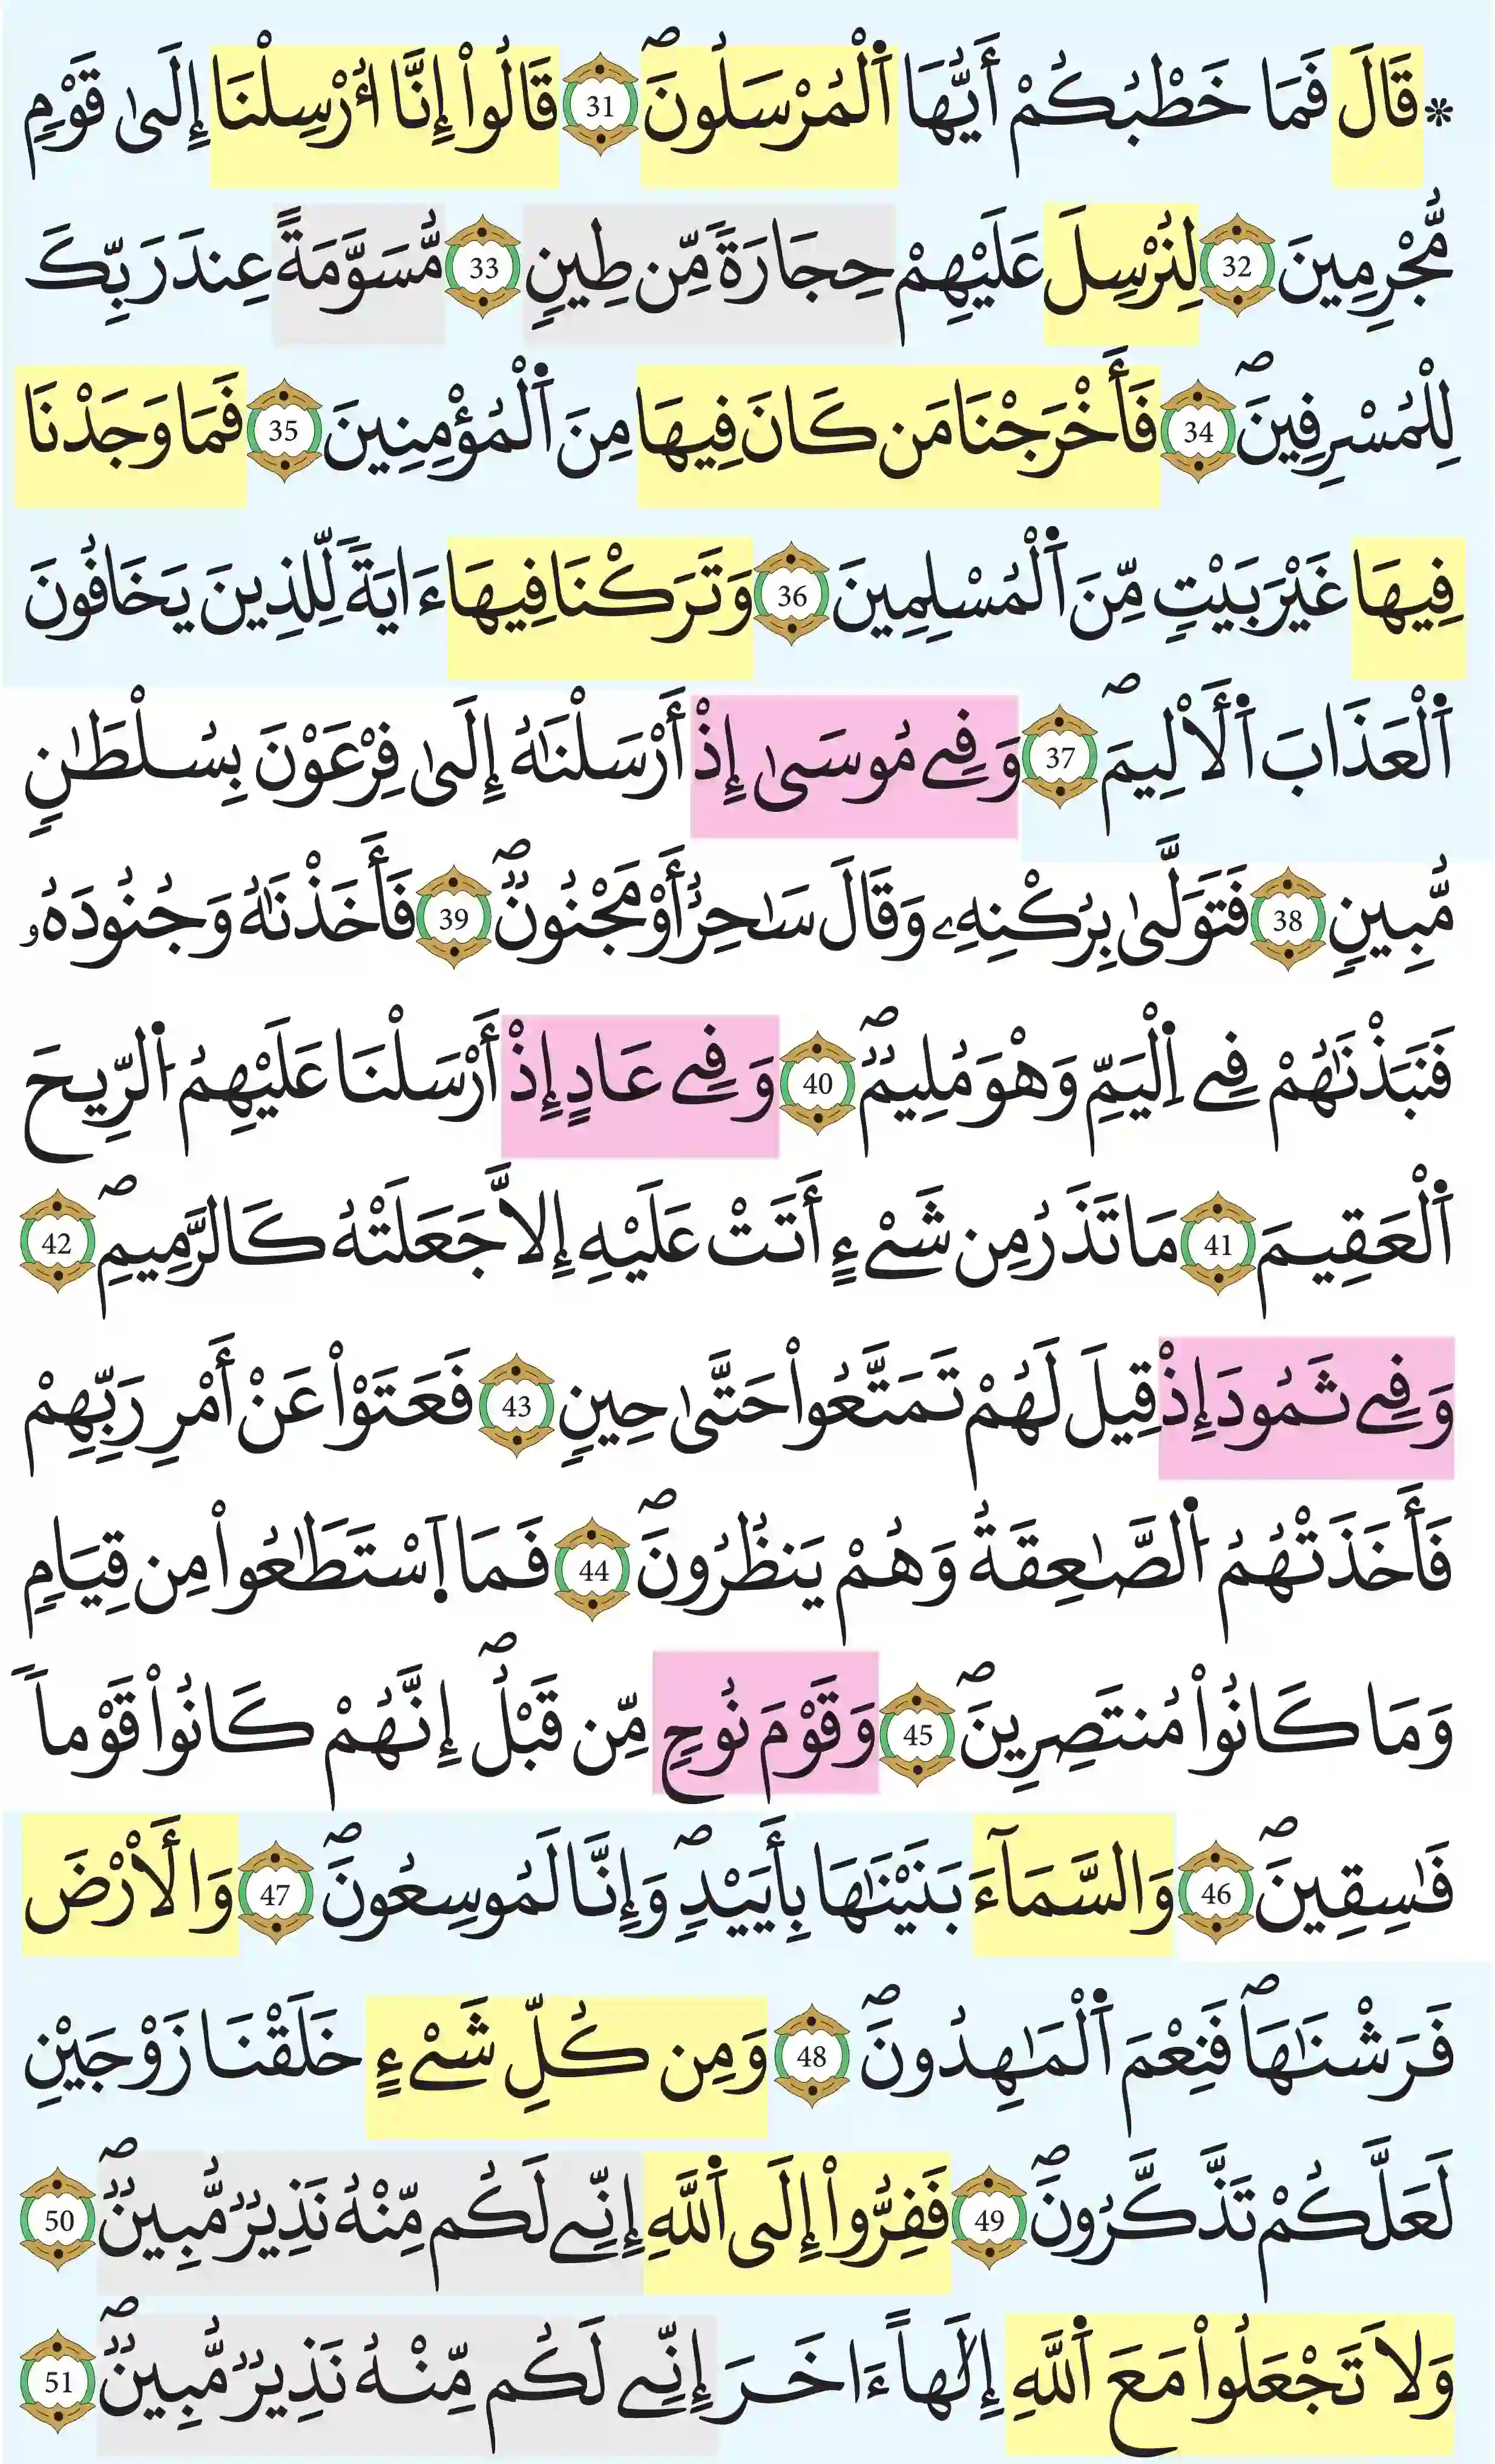 * قَالَ فَمَا خَطْبُكُمْ أَيُّهَا اَ۬لْمُرْسَلُونَۖ 31 قَالُواْ إِنَّا أُرْسِلْنَا إِلَىٰ قَوْمٖ
مُّجْرِمِينَ 32 لِنُرْسِلَ عَلَيْهِمْ حِجَارَةٗ مِّن طِينٖ 33 مُّسَوَّمَةً عِندَ رَبِّكَ
لِلْمُسْرِفِينَۖ 34 فَأَخْرَجْنَا مَن كَانَ فِيهَا مِنَ اَ۬لْمُؤْمِنِينَ 35 فَمَا وَجَدْنَا
فِيهَا غَيْرَ بَيْتٖ مِّنَ اَ۬لْمُسْلِمِينَ 36 وَتَرَكْنَا فِيهَا ءَايَةٗ لِّلذِينَ يَخَافُونَ
اَ۬لْعَذَابَ اَ۬لَالِيمَۖ 37 وَفِے مُوسَىٰ إِذْ أَرْسَلْنَٰهُ إِلَىٰ فِرْعَوْنَ بِسُلْطَٰنٖ
مُّبِينٖ 38 فَتَوَلَّىٰ بِرُكْنِهِۦ وَقَالَ سَٰحِرٌ أَوْ مَجْنُونٞۖ 39 فَأَخَذْنَٰهُ وَجُنُودَهُۥ
فَنَبَذْنَٰهُمْ فِے اِ۬لْيَمِّ وَهْوَ مُلِيمٞۖ 40 وَفِے عَادٍ إِذْ أَرْسَلْنَا عَلَيْهِمُ اُ۬لرِّيحَ
اَ۬لْعَقِيمَ 41 مَا تَذَرُ مِن شَےْءٍ أَتَتْ عَلَيْهِ إِلَّا جَعَلَتْهُ كَالرَّمِيمِۖ 42
وَفِے ثَمُودَ إِذْ قِيلَ لَهُمْ تَمَتَّعُواْ حَتَّىٰ حِينٖ 43 فَعَتَوْاْ عَنْ أَمْرِ رَبِّهِمْ
فَأَخَذَتْهُمُ اُ۬لصَّٰعِقَةُ وَهُمْ يَنظُرُونَۖ 44 فَمَا اَ۪سْتَطَٰعُواْ مِن قِيَامٖ
وَمَا كَانُواْ مُنتَصِرِينَۖ 45 وَقَوْمَ نُوحٖ مِّن قَبْلُۖ إِنَّهُمْ كَانُواْ قَوْماٗ
فَٰسِقِينَۖ 46 وَالسَّمَآءَ بَنَيْنَٰهَا بِأَيَيْدٖۖ وَإِنَّا لَمُوسِعُونَۖ 47 وَالَارْضَ
فَرَشْنَٰهَاۖ فَنِعْمَ اَ۬لْمَٰهِدُونَۖ 48 وَمِن كُلِّ شَےْءٍ خَلَقْنَا زَوْجَيْنِ
لَعَلَّكُمْ تَذَّكَّرُونَۖ 49 فَفِرُّواْ إِلَى اَ۬للَّهِ إِنِّے لَكُم مِّنْهُ نَذِيرٞ مُّبِينٞۖ 50
وَلَا تَجْعَلُواْ مَعَ اَ۬للَّهِ إِلَٰهاً ءَاخَرَ إِنِّے لَكُم مِّنْهُ نَذِيرٞ مُّبِينٞۖ 51